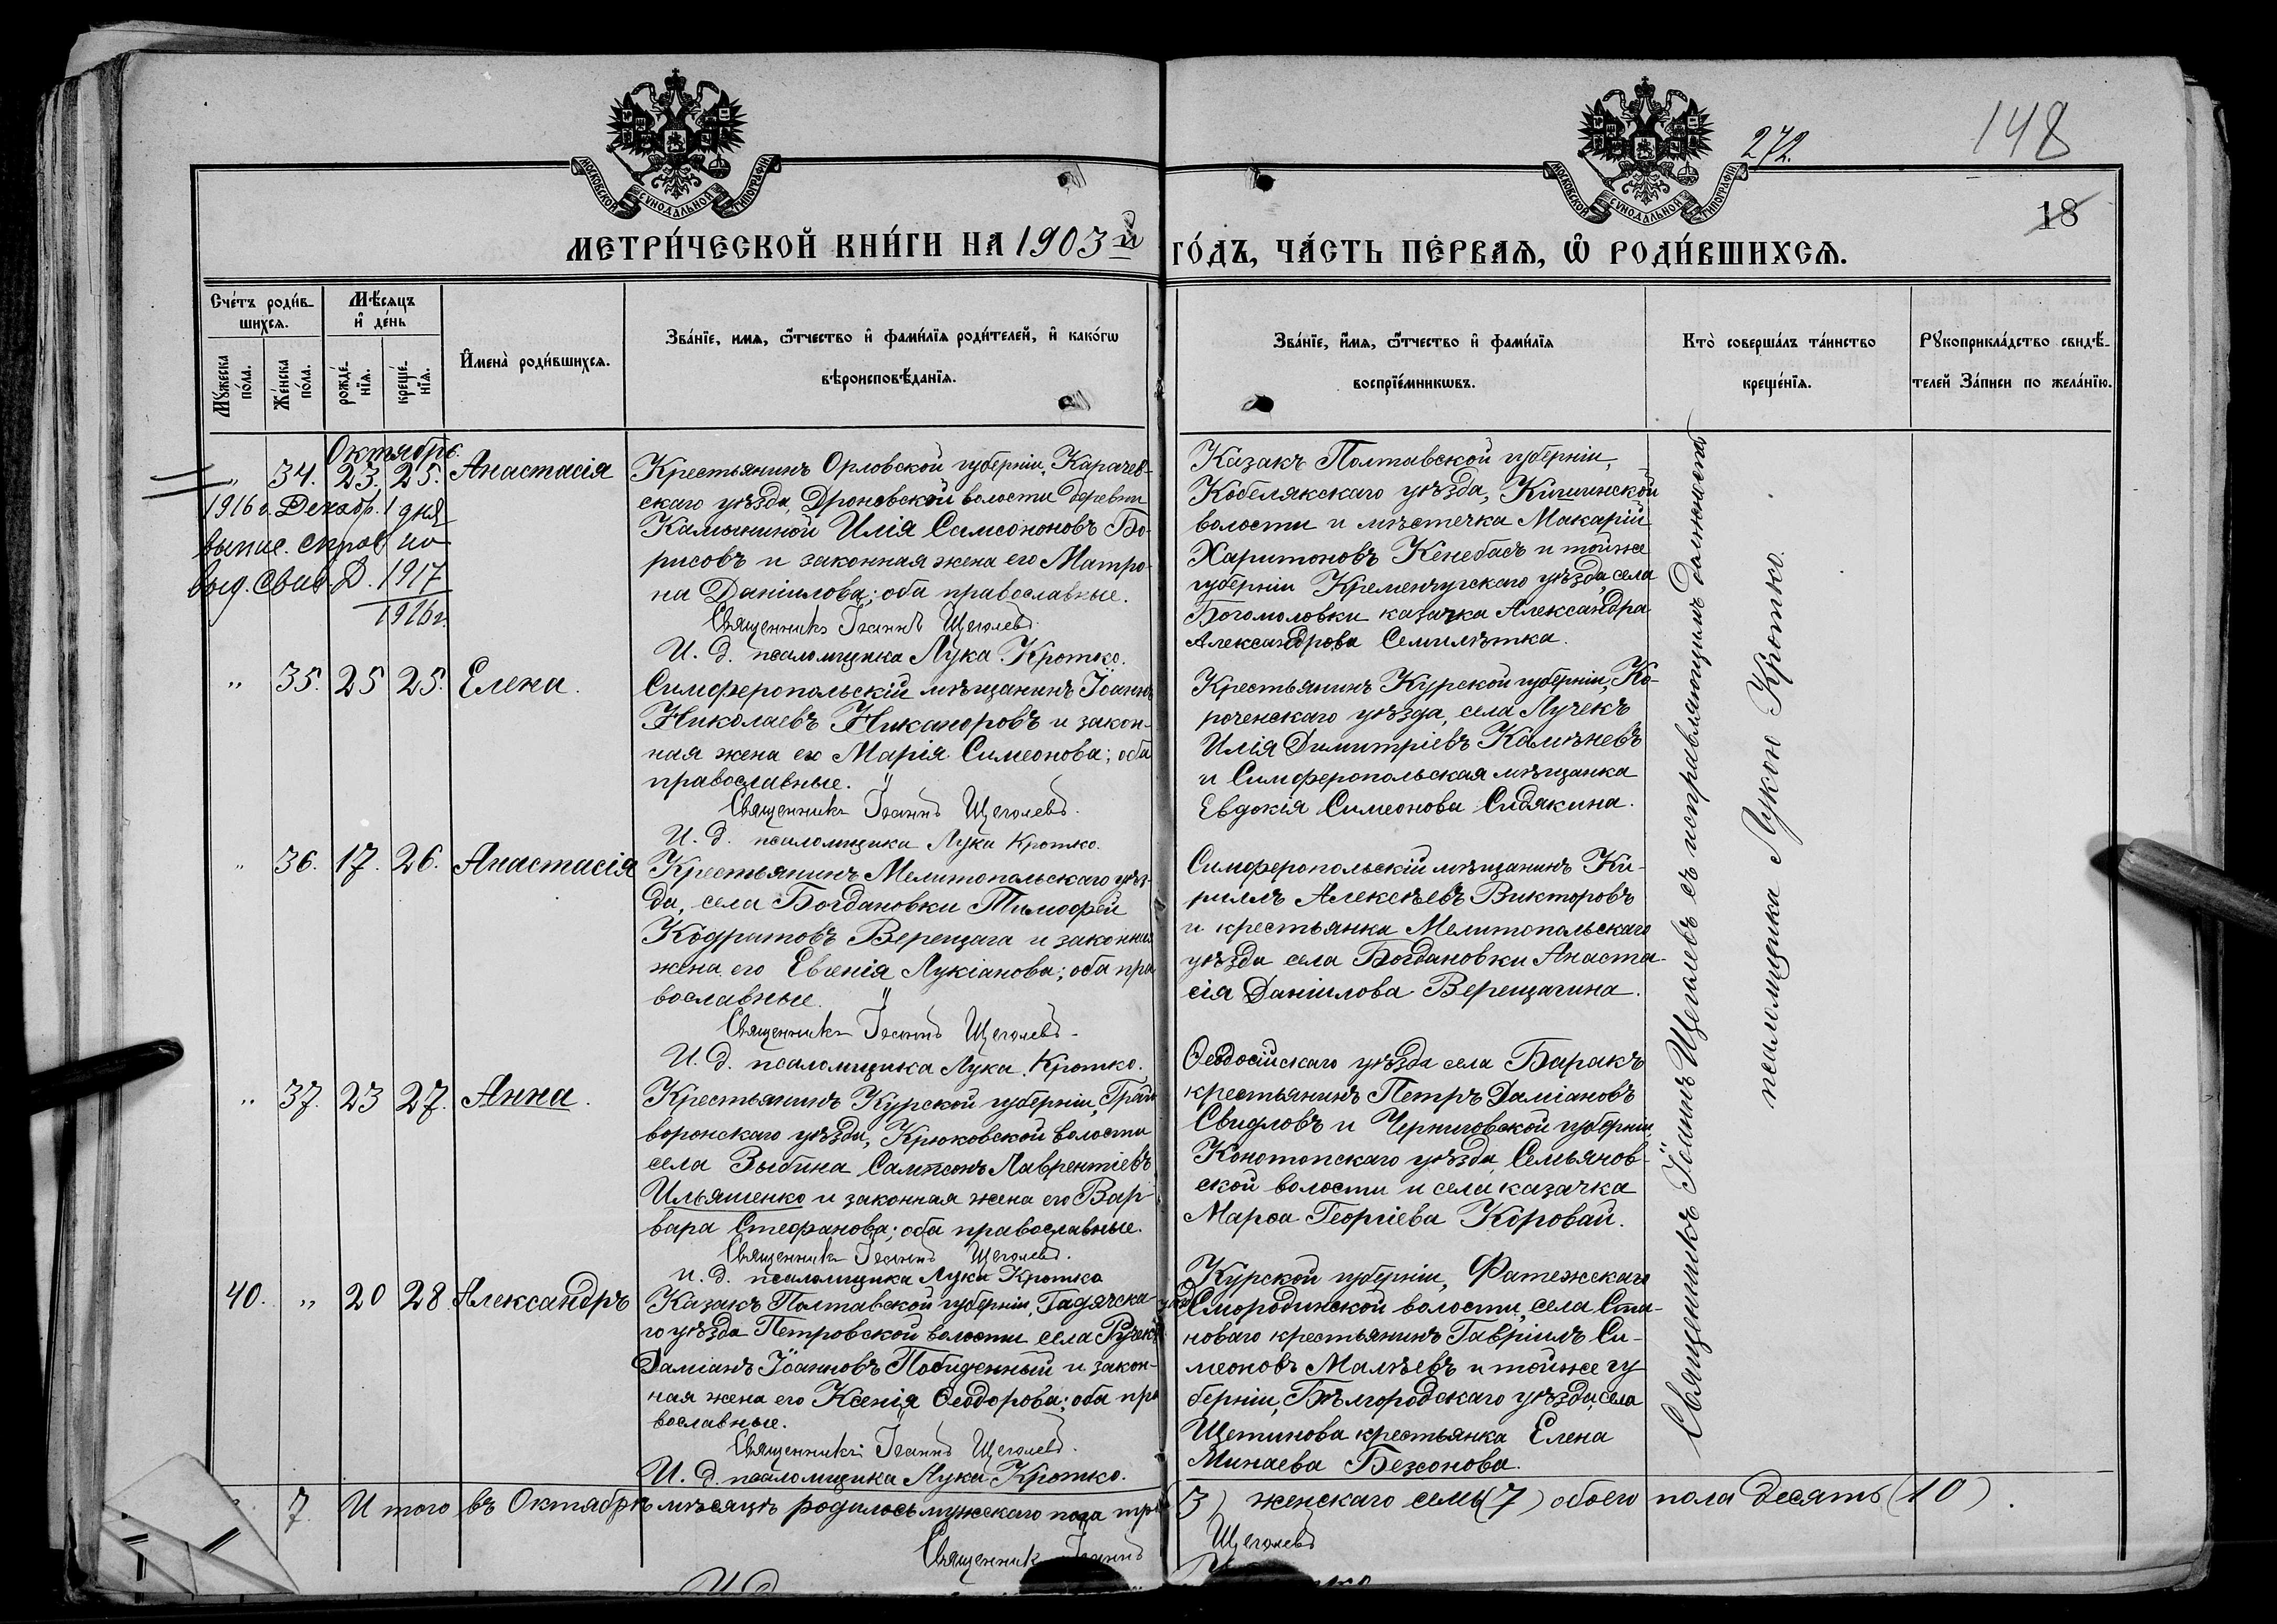 МОСКОВСКОЙ СѴНОДАЛЬНОЙ ТИПОГРАФІИ
МОСКОВСКОЙ СѴНОДАЛЬНОЙ ТИПОГРАФІИ
272.
148
18
МЕТРИ́ЧЕСКОЙ КНИ́ГИ НА 1903й ГО́ДЪ, ЧА́СТЬ ПЕ́РВАѦ, Ѡ҆ РОДИ́ВШИХСѦ.
Сче́тъ роди́в-
шихсѧ.
Мѣ́сѧцъ
и҆ де́нь
Мꙋ́жеска
по́ла.
Же́нска
по́ла.
рожде́-
нїѧ.
креще́-
нїѧ.
И҆мена̀ роди́вшихсѧ.
Зва́нїе, имѧ, ѻ҆́тчество и҆ фами́лїѧ роди́телей, и҆ како́гѡ
вѣроисповѣ́данїѧ.
Зва́нїе, и҆́мѧ, ѻ҆́тчество и҆ фами́лїѧ
воспрїе́мникѡвъ.
Кто̀ соверша́лъ та́инство
креще́нїѧ.
Рꙋкоприкла́дство свидѣ́-
телей За́писи по жела́нїю.
Октябрь.
" 34. 23. 25. Анастасія
1916 г. Декабр. 1 дня
выпис. справ но
выд. свид. Д. 1917
1916 г.
Крестьянинъ Орловской губерніи, Карачев-
скаго уѣзда, Дроновской волости деревни
Камыниной Илія Самсононовъ Бо-
рисовъ и законная жена его Матро-
на Даніилова; оба православные.
Священникъ Іоаннъ Щеголевъ.
И. д. псаломщика Лука Кротко.
Казакъ Полтавской губерніи,
Кобелякскаго уѣзда, Кишинской
волости и мѣстечка Макарій
Харитоновъ Кенебасъ и тойже
губерніи Кременчугскаго уѣзда, села
Богомоловки казачка Александра
Александрова Семилѣтка.
" 35. 25 25. Елена.
Симферопольскій мѣщанинъ Іоаннъ
Николаевъ Никаноровъ и закон-
ная жена его Марія Симеонова; оба
православные. "
Священникъ Іоаннъ Щеголевъ.
И. д. псаломщика Лука Кротко.
Крестьянинъ Курской губерніи, Ко-
роченскаго уѣзда, села Лучекъ
Илія Димитріевъ Камѣневъ
и Симферопольская мѣщанка
Евдокія Симеонова Сидякина.
" 36. 17. 26. Анастасія
Крестьянинъ Мелитопольскаго уѣз-
да, села Богдановки Тимофей
Кодратовъ Верещага и законная
жена его Евгенія Лукіанова; оба пра
вославные. "
Священникъ Іоаннъ Щеголевъ.
И. д. псаломщика Лука Кротко.
Симферопольскій мѣщанинъ Ки-
риллъ Алексѣевъ Викторовъ
и крестьянка Мелитопольскаго
уѣзда села Богдановки Анаста-
сія Даніилова Верещагина.
" 37. 23 27. Анна.
Крестьянинъ Курской губерніи, Грай
воронскаго уѣзда, Крюковской волости
села Зыбина Сампсонъ Лаврентіевъ
Ильяшенко и законная жена его Вар-
вара Стефанова; оба православные.
Священникъ Іоаннъ Щеголевъ.
И. д. псаломщика Лука Кротко
Ѳеодосійскаго уѣзда села Баракъ
крестьянинъ Петръ Даміановъ
Свидловъ и Черниговской губерніи,
Конотопскаго уѣзда, Семьянов-
ской волости и села казачка
Марѳа Георгіева Коровай.
40. " 20 28 Александръ
Казакъ Полтавской губерніи, Гадячска-
го уѣзда Петровской волости села Ручекъ
Даміанъ Іоанновъ Побиденный и закон-
ная жена его Ксенія Ѳеодорова; оба пра
вославные.
Священникъ Іоаннъ Щеголевъ.
И. д. псаломщика Лука Кротко.
Курской губерніи, Фатежскаго
Смородинской волости, села Ста-
новаго крестьянинъ Гавріилъ Си-
меоновъ Малѣевъ и тойже гу
берніи, Бѣлгородскаго уѣзда, села
Щетинова крестьянка Елена
Минаева Безсонова.
Священникъ Іоаннъ Щеголевъ съ исправляющимъ должность
псаломщика Лукою Кротко.
7. Итого въ Октябрѣ мѣсяцѣ родилось мужескаго пола три (3) женскаго семь (7) обоего пола десять (10).
Священникъ Іоаннъ Щеголевъ
И. д.